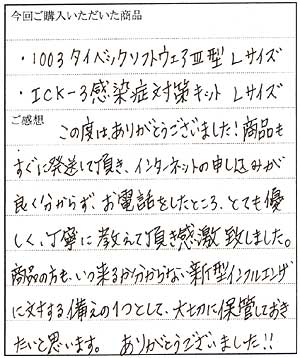 今回ご購入いただいた商品
・1003タイベックソフトウェアⅢ型 Lサイズ
・ICK-3感染症対策キット Lサイズ
ご感想
この度はありがとうございました！商品も
すぐに発送して頂き、インターネットの申し込みが
良く分からず、お電話をしたところ、とても優
しく、丁寧に教えて頂き感激致しました。
商品の方も、いつ来るか分からない新型インフルエンザ
に対する備えの1つとして、大切に保管しておき
たいと思います。 ありがとうございました!!